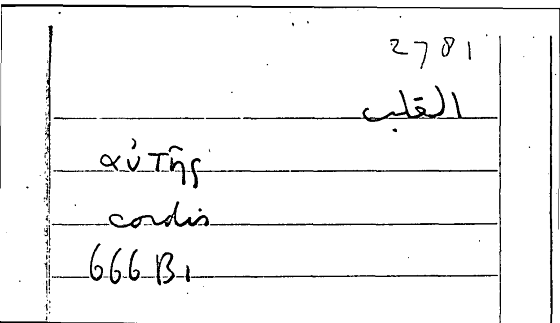 2781
القلب
αὐτῆς
cordis
666 B1